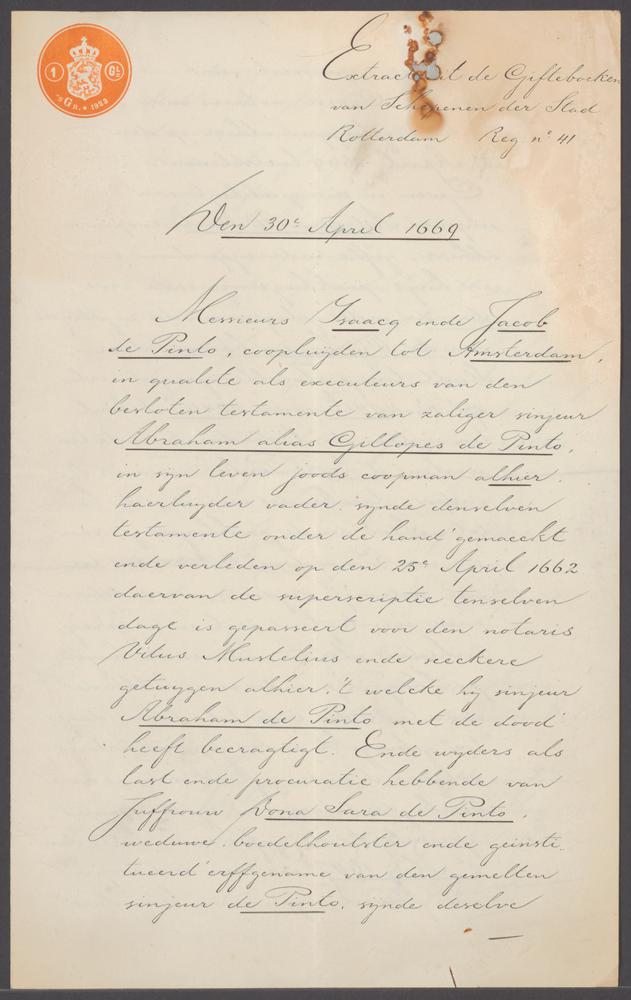 1 Gl.
'S GR. * 1923
Extract uit de Gifteboeken
van Schepenen der Stad
Rotterdam Reg nº 41
Den 30e April 1669
Messieurs Isaacq ende Jacob
de Pinto, coopluijden tot Amsterdam,
in qualite als executeurs van den
besloten testamente van zaliger sinjeur
Abraham alias Gillopes de Pinto,
in sijn leven joods coopman alhier.
haerluyder vader. sijnde denselven
testamente onder de hand gemaeckt
ende verleden op den 25e April 1662
daervan de superscriptie tenselven
dage is gepasseert voor den notaris
Vitus Mustelius ende seeckere
getuygen alhier, 't welcke hy sinjeur
Abraham de Pinto met de dood
heeft becragtigt. Ende wyders als
last ende procuratie hebbende van
Juffrouw Dona Sara de Pinto,
weduwe. boedelhoutster ende geinsti-
tueerd erffgename van den gemelten
sinjeur de Pinto, sijnde deselve